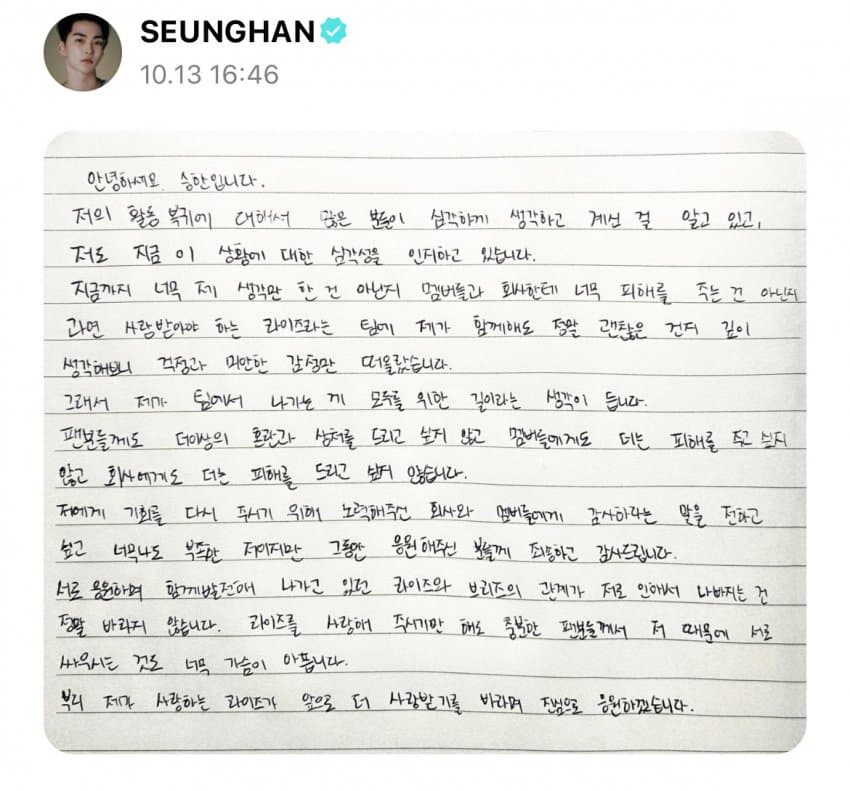 SEUNGHAN
10.13 16:46
안녕하세요. 승한입니다.
저의 활동 복귀에 대해서 많은 분들이 심각하게 생각하고 계신 걸 알고 있고,
저도 지금 이 상황에 대한 심각성을 인지하고 있습니다.
지금까지 너무 제 생각만 한 건 아닌지 멤버들과 회사한테 너무 피해를 주는 건 아닌지
과연 사랑받아야 하는 라이즈라는 팀에 제가 함께해도 정말 괜찮은 건지 깊이
생각해보니 걱정과 미안한 감정만 떠올랐습니다.
그래서 제가 팀에서 나가는 게 모두를 위한 길이라는 생각이 듭니다.
팬분들께도 더이상의 혼란과 상처를 드리고 싶지 않고 멤버들에게도 더는 피해를 주고 싶지
않고 회사에게도 더는 피해를 드리고 싶지 않습니다.
저에게 기회를 다시 주시기 위해 노력해주신 회사와 멤버들에게 감사하라는 말을 전하고
싶고 너무나도 부족한 저이지만 그동안 응원해주신 분들께 죄송하고 감사드립니다.
서로 응원하며 함께 발전해 나가고 있던 라이즈와 브리즈의 관계가 저로 인해서 나빠지는 건
정말 바라지 않습니다. 라이즈를 사랑해 주시기만 해도 충분한 팬분들께서 저 때문에 서로
싸우시는 것도 너무 가슴이 아픕니다.
부디 제가 사랑하는 라이즈가 앞으로 더 사랑받기를 바라며 진심으로 응원하겠습니다.